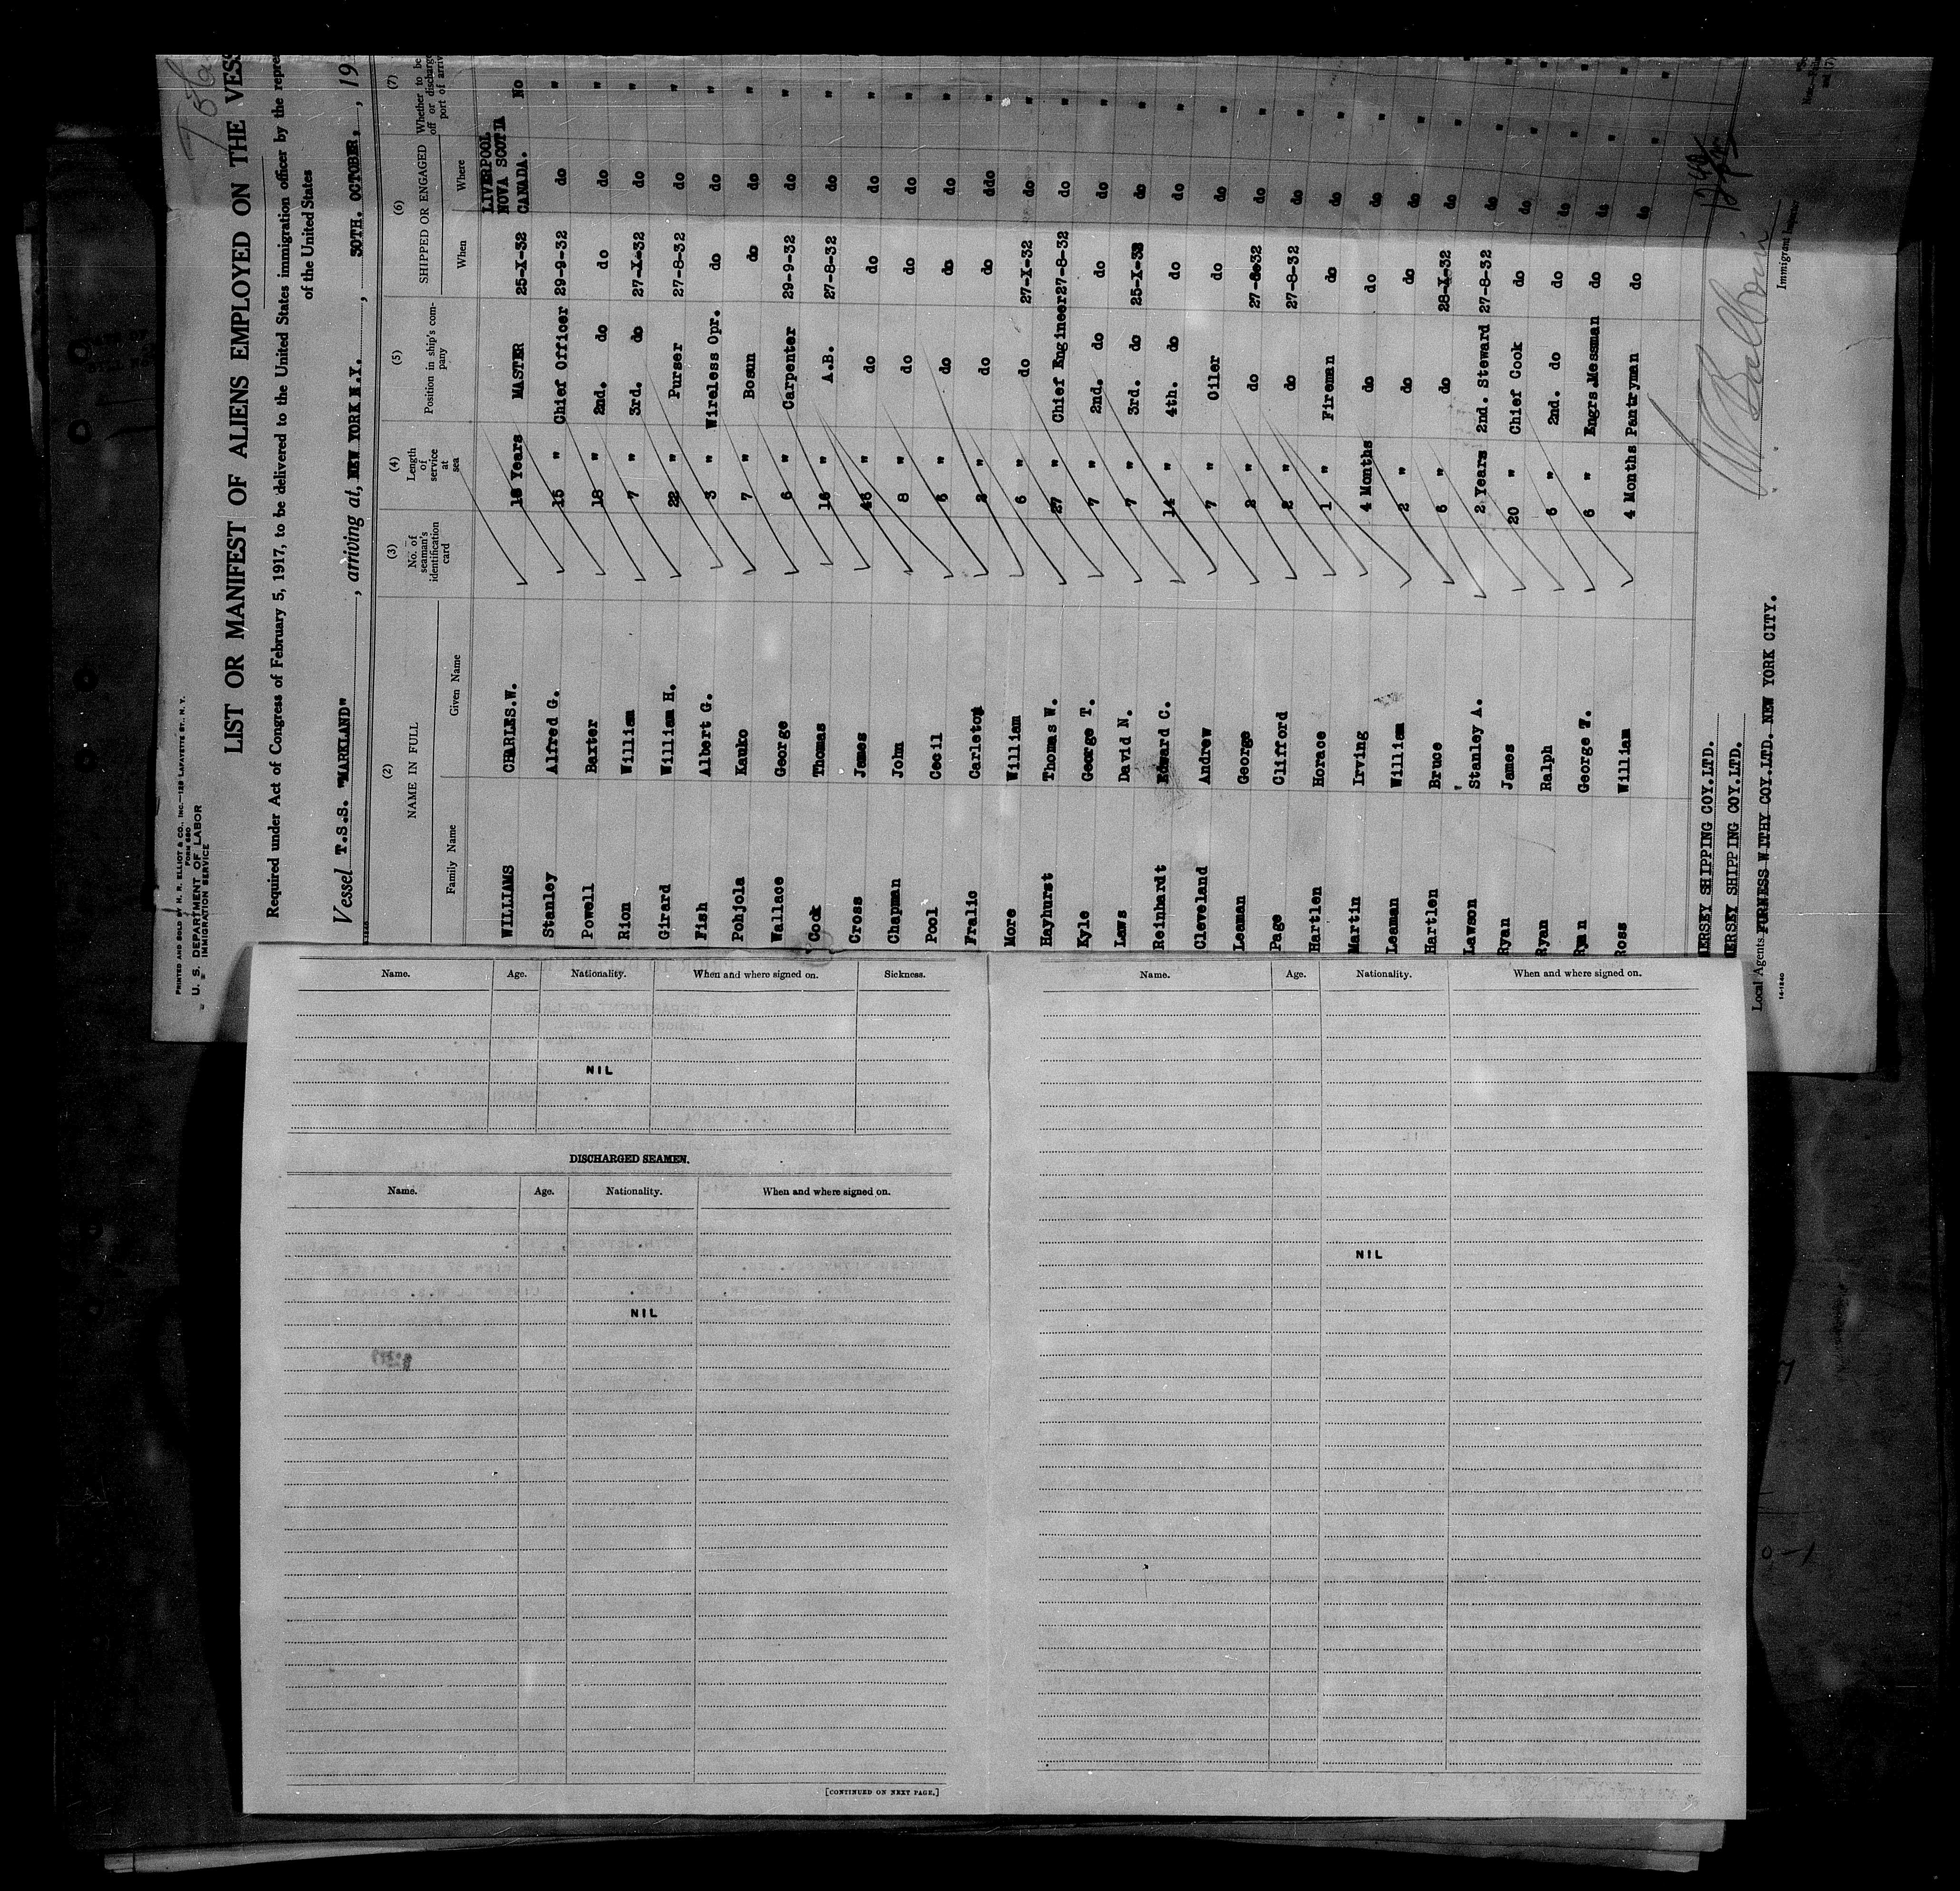 PRINTED AND SOLD BY H. R. ELLIOT & CO., INC.—129 LAFAYETTE ST., N. Y.
FORM 680
U. S. DEPARTMENT OF LABOR
IMMIGRATION SERVICE
LIST OR MANIFEST OF ALIENS EMPLOYED ON THE VESS
Required under Act of Congress of February 5, 1917, to be delivered to the United States immigration officer by the repre
of the United States
Vessel T.S.S. "MARKLAND", arriving at, NEW YORK N.Y., 30TH. OCTOBER, 19
(2) (3) (4) (5) (6) (7)
NAME IN FULL No. of seaman's identification card Length of service at sea Position in ship's company SHIPPED OR ENGAGED Whether to be off or discharge port of arriv
Family Name Given Name When Where
WILLIAMS CHARLES.W. 18 Years MASTER 25-X-32 LIVERPOOL NOVA SCOTIA CANADA. No
Stanley Alfred G. 15 " Chief Officer 29-9-32 do "
Powell Baxter 18 " 2nd. do do do "
Rion William 7 " 3rd. do 27-X-32 do "
Girard William H. 22 " Purser 27-8-32 do "
Fish Albert G. 3 " Wireless Opr. do do "
Pohjola Kauko 7 " Bosun do do "
Wallace George 6 " Carpenter 29-9-32 do "
Cook Thomas 16 " A.B. 27-8-32 do "
Cross James 46 " do do do "
Chapman John 8 " do do do "
Pool Cecil 6 " do do do "
Fralic Carleton 2 " do do ddo "
More William 6 " do 27-X-32 do "
Hayhurst Thomas W. 27 " Chief Engineer 27-8-32 do "
Kyle George T. 7 " 2nd. do do do "
Laws David N. 7 " 3rd. do 25-X-32 do "
Reinhardt Edward C. 14 " 4th. do do do "
Cleveland Andrew 7 " Oiler do do "
Leaman George 2 " do 27-8-32 do "
Page Clifford 2 " do 27-8-32 do "
Hartlen Horace 1 " Fireman do do "
Martin Irving 4 Months do do do "
Leaman William 2 " do do do "
Hartlen Bruce 6 " do 28-X-32 do "
Lawson Stanley A. 2 Years 2nd. Steward 27-8-32 do "
Ryan James 20 " Chief Cook do do "
Ryan Ralph 6 " 2nd. do do do "
Ryan George W. 6 " Engrs.Messman do do "
Ross William 4 Months Pantryman do do "
MERSEY SHIPPING COY.LTD.
MERSEY SHIPPING COY.LTD.
Local Agents FURNESS WITHY COY.LTD. NEW YORK CITY.
Immigrant Inspector
14-1240
Name. Age. Nationality. When and where signed on. Sickness.
NIL
DISCHARGED SEAMEN.
Name. Age. Nationality. When and where signed on.
NIL
[CONTINUED ON NEXT PAGE.]
Name. Age. Nationality. When and where signed on.
NIL